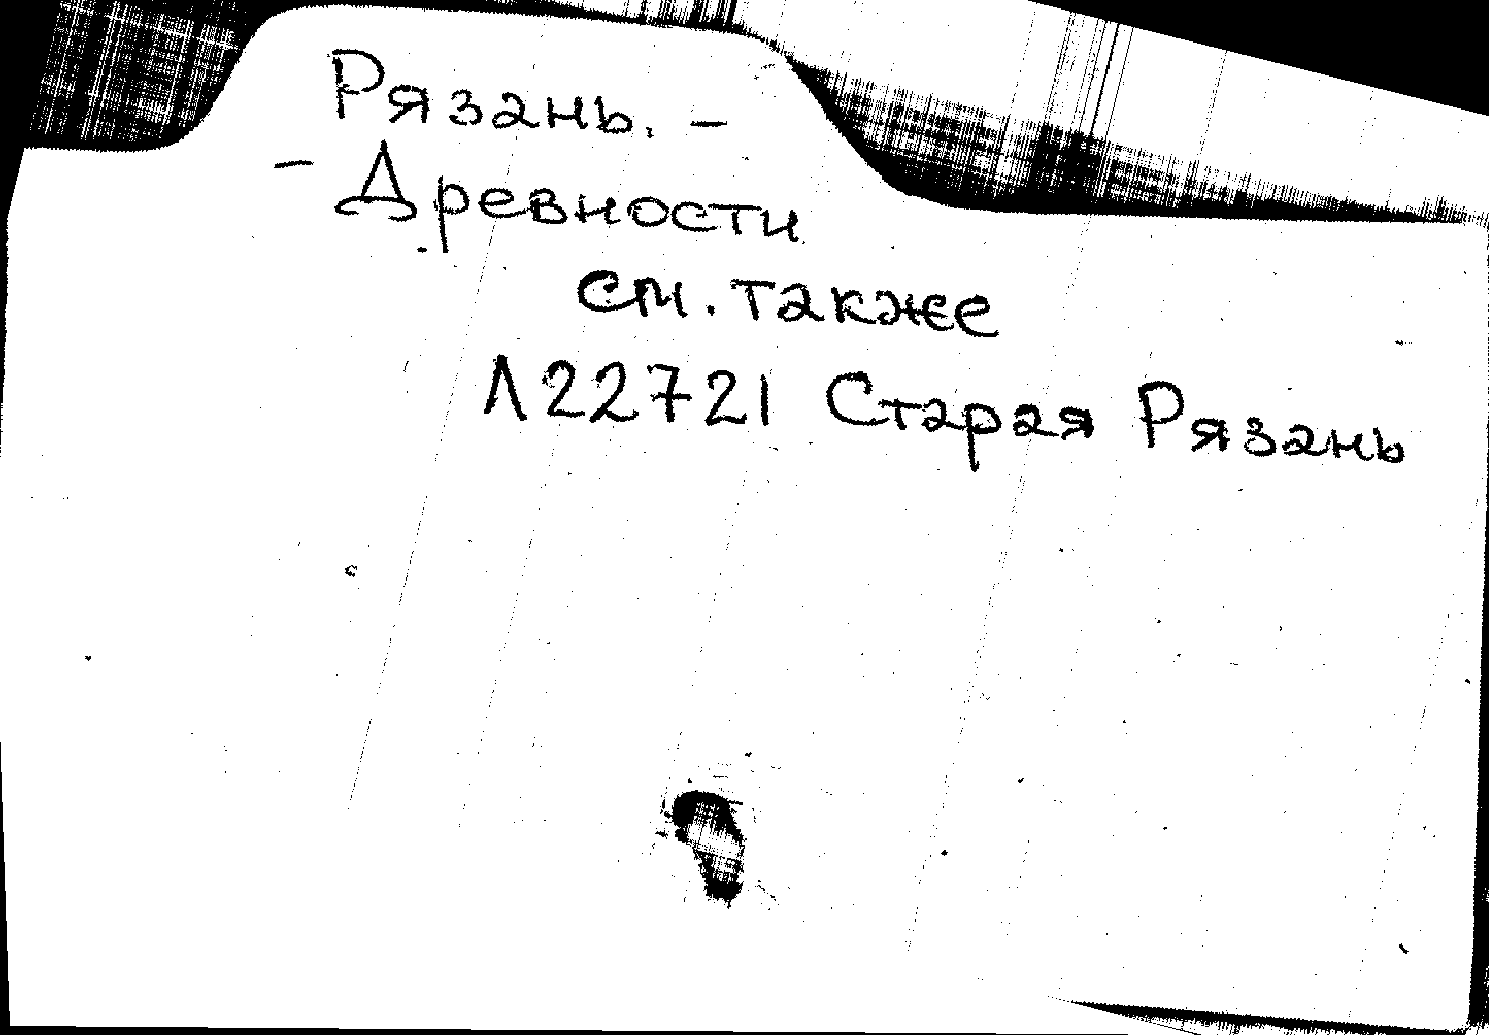 Рязань. –
– Древности
см. также
Л22721 Старая Рязань